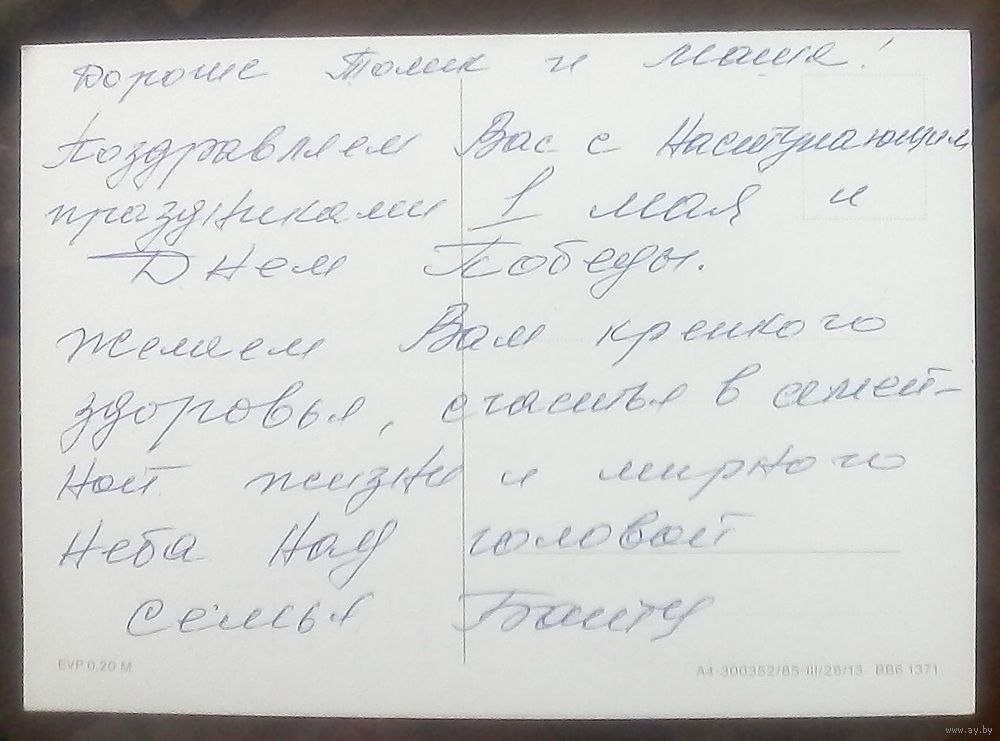 Дорогие Толик и Маша!
Поздравляем Вас с Наступающим
праздниками 1 мая и
Днем Победы.
Желаем Вам крепкого
здоровья, счастья в семей-
ной жизни и мирного
Неба Над головой
семья
EVP 0,20 M
A4-300352/85 III/26/13 BB6 1371
www.ay.by